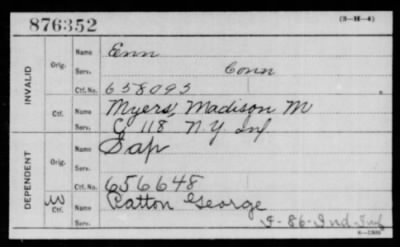 876352
(3-H-4)
INVALID
Orig.
Name
Enn
Serv.
Conn
Ctf. No.
658093
Ctf.
Name
Myers, Madison M
Serv.
G 118 N.Y. Inf
DEPENDENT
Orig.
Name
Sap
Serv.
Ctf. No.
656648
W
Ctf.
Name
Patton George
Serv.
I-86-Ind Inf